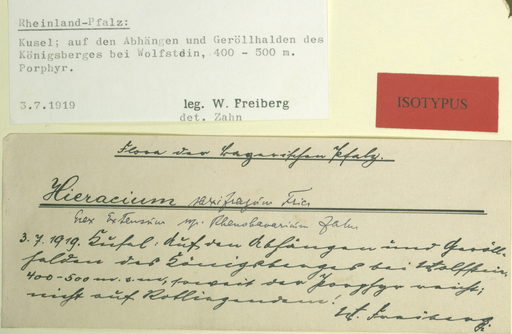 Rheinland-Pfalz:
Kusel; auf den Abhängen und Geröllhalden des
Königsberges bei Wolfstein, 400 - 500 m.
Porphyr.
3.7.1919 leg. W. Freiberg
det. Zahn
ISOTYPUS
Flora der Bayerischen Pfalz.
Hieracium saxifragum Fries
Grex Extensum ssp. Rhenobavaricum Zahn
3.7.1919. Kusel: Auf den Abhängen und Geröll-
halden des Königsberges bei Wolfstein,
400-500 m. s. m., soweit der Porphyr reicht;
nicht auf Rotliegendem!
W. Freiberg.